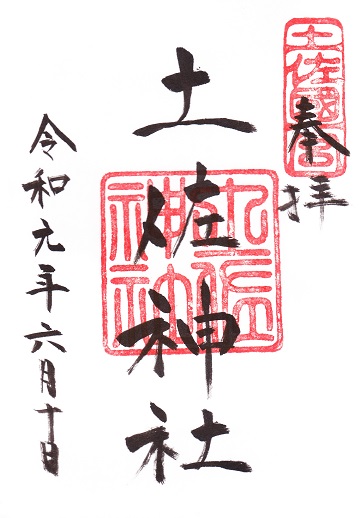 奉拝
土佐神社
土佐神社
令和元年六月十日